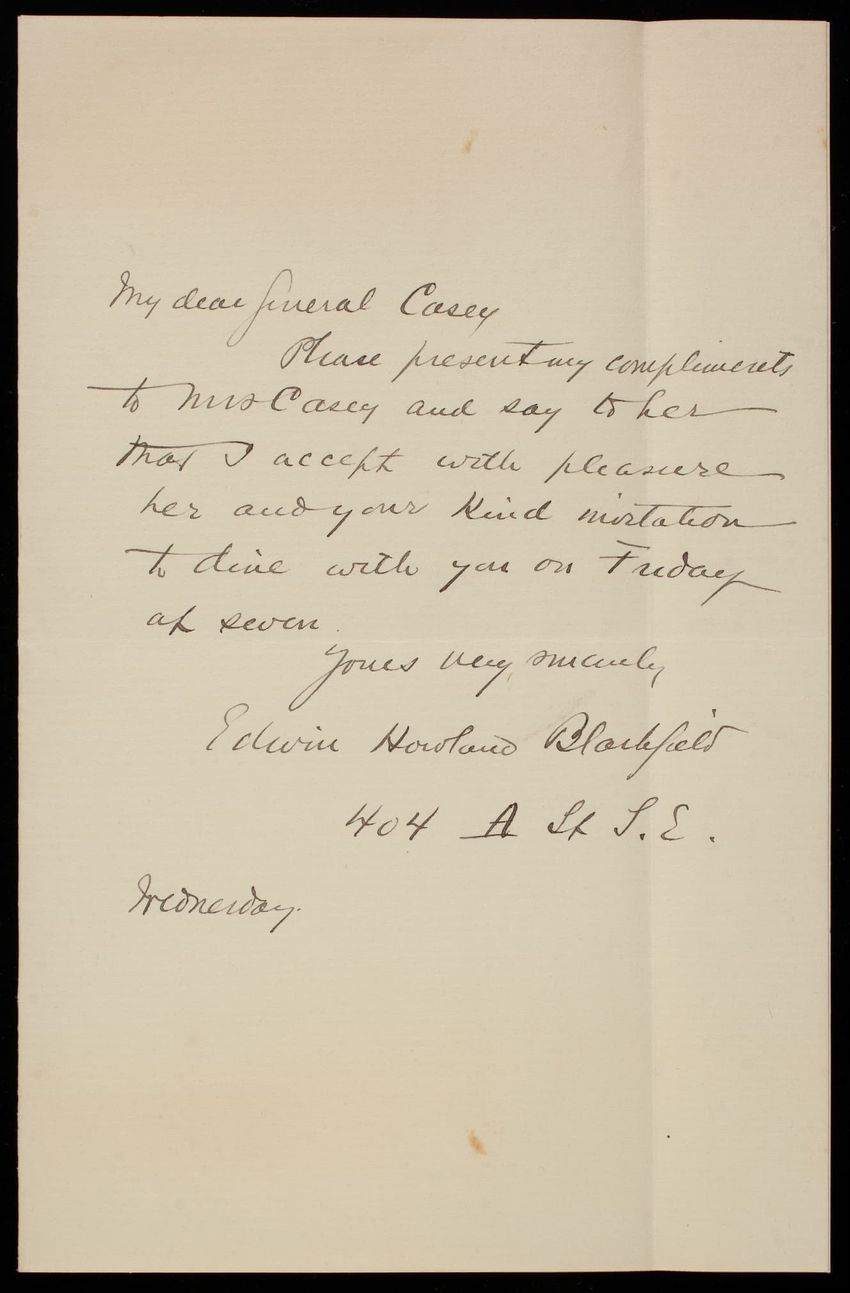 My dear General Casey
Please present my compliments
to Mrs Casey and say to her
that I accept with pleasure
her and your kind invitation
to dine with you on Friday
at seven.
Yours very sincerely
Edwin Howland Blashfield
404 A St S.E.
Wednesday.